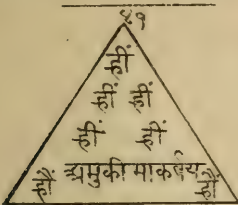 ह्रीं
ह्रीं ह्रीं
ह्रीं ह्रीं
ह्रीं अमुकी माकर्षय ह्रीं